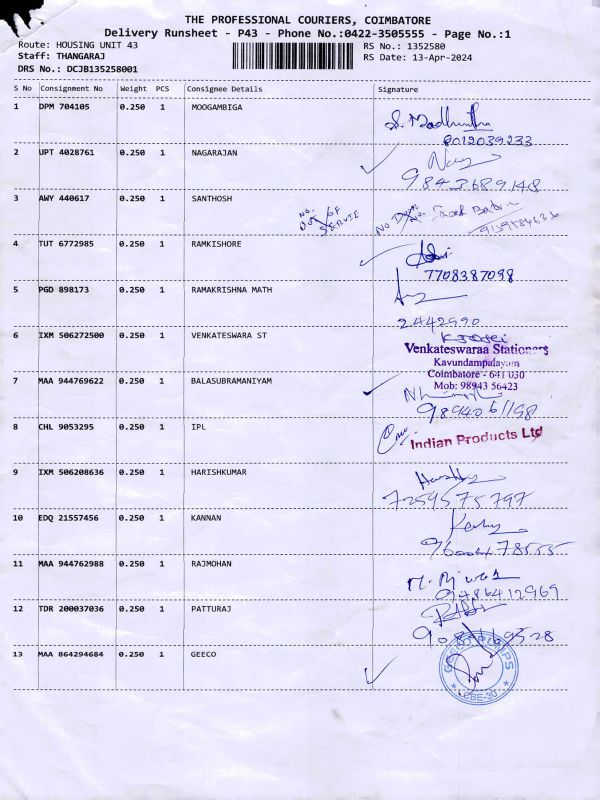 THE PROFESSIONAL COURIERS, COIMBATORE
Delivery Runsheet - P43 - Phone No.:0422-3505555 - Page No.:1
Route: HOUSING UNIT 43 RS No.: 1352580
Staff: THANGARAJ RS Date: 13-Apr-2024
DRS No.: DCJB135258001
S No Consignment No Weight PCS Consignee Details Signature
1 DPM 704105 0.250 1 MOOGAMBIGA
8012039233
2 UPT 4028761 0.250 1 NAGARAJAN
9843689148
3 AWY 440617 0.250 1 SANTHOSH
NO. OUT OF SERVIE
4 TUT 6772985 0.250 1 RAMKISHORE
7708387098
5 PGD 898173 0.250 1 RAMAKRISHNA MATH
2442990
6 IXM 506272500 0.250 1 VENKATESWARA ST
Venkateswaraa Stationers
Kavundampalayam
Coimbatore - 641 030
Mob: 98943 56423
7 MAA 944769622 0.250 1 BALASUBRAMANIYAM
8 CHL 9053295 0.250 1 IPL
Indian Products Ltd
9 IXM 506208636 0.250 1 HARISHKUMAR
7259575797
10 EDQ 21557456 0.250 1 KANNAN
9600478555
11 MAA 944762988 0.250 1 RAJMOHAN
9486412969
12 TDR 200037036 0.250 1 PATTURAJ
13 MAA 864294684 0.250 1 GEECO
CBE-30